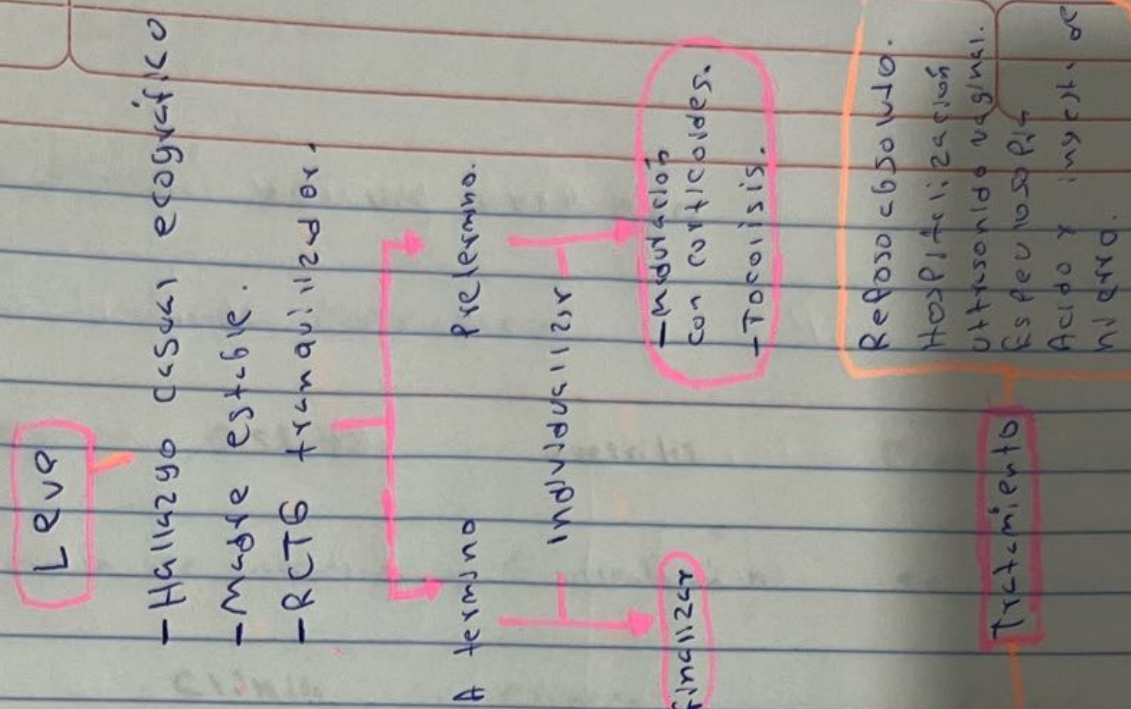 Leve
- Hallazgo casual ecográfico
- Madre estable.
- RCTG tranquilizador.
A termino
Pretermino.
Individualizar
Finalizar
- Maduración
con corticoides.
- Tocolisis.
Tratamiento
Reposo absoluto.
Hospitalización
Ultrasonido vaginal.
Espaculosopia
Acido y ingesta de
hierro.